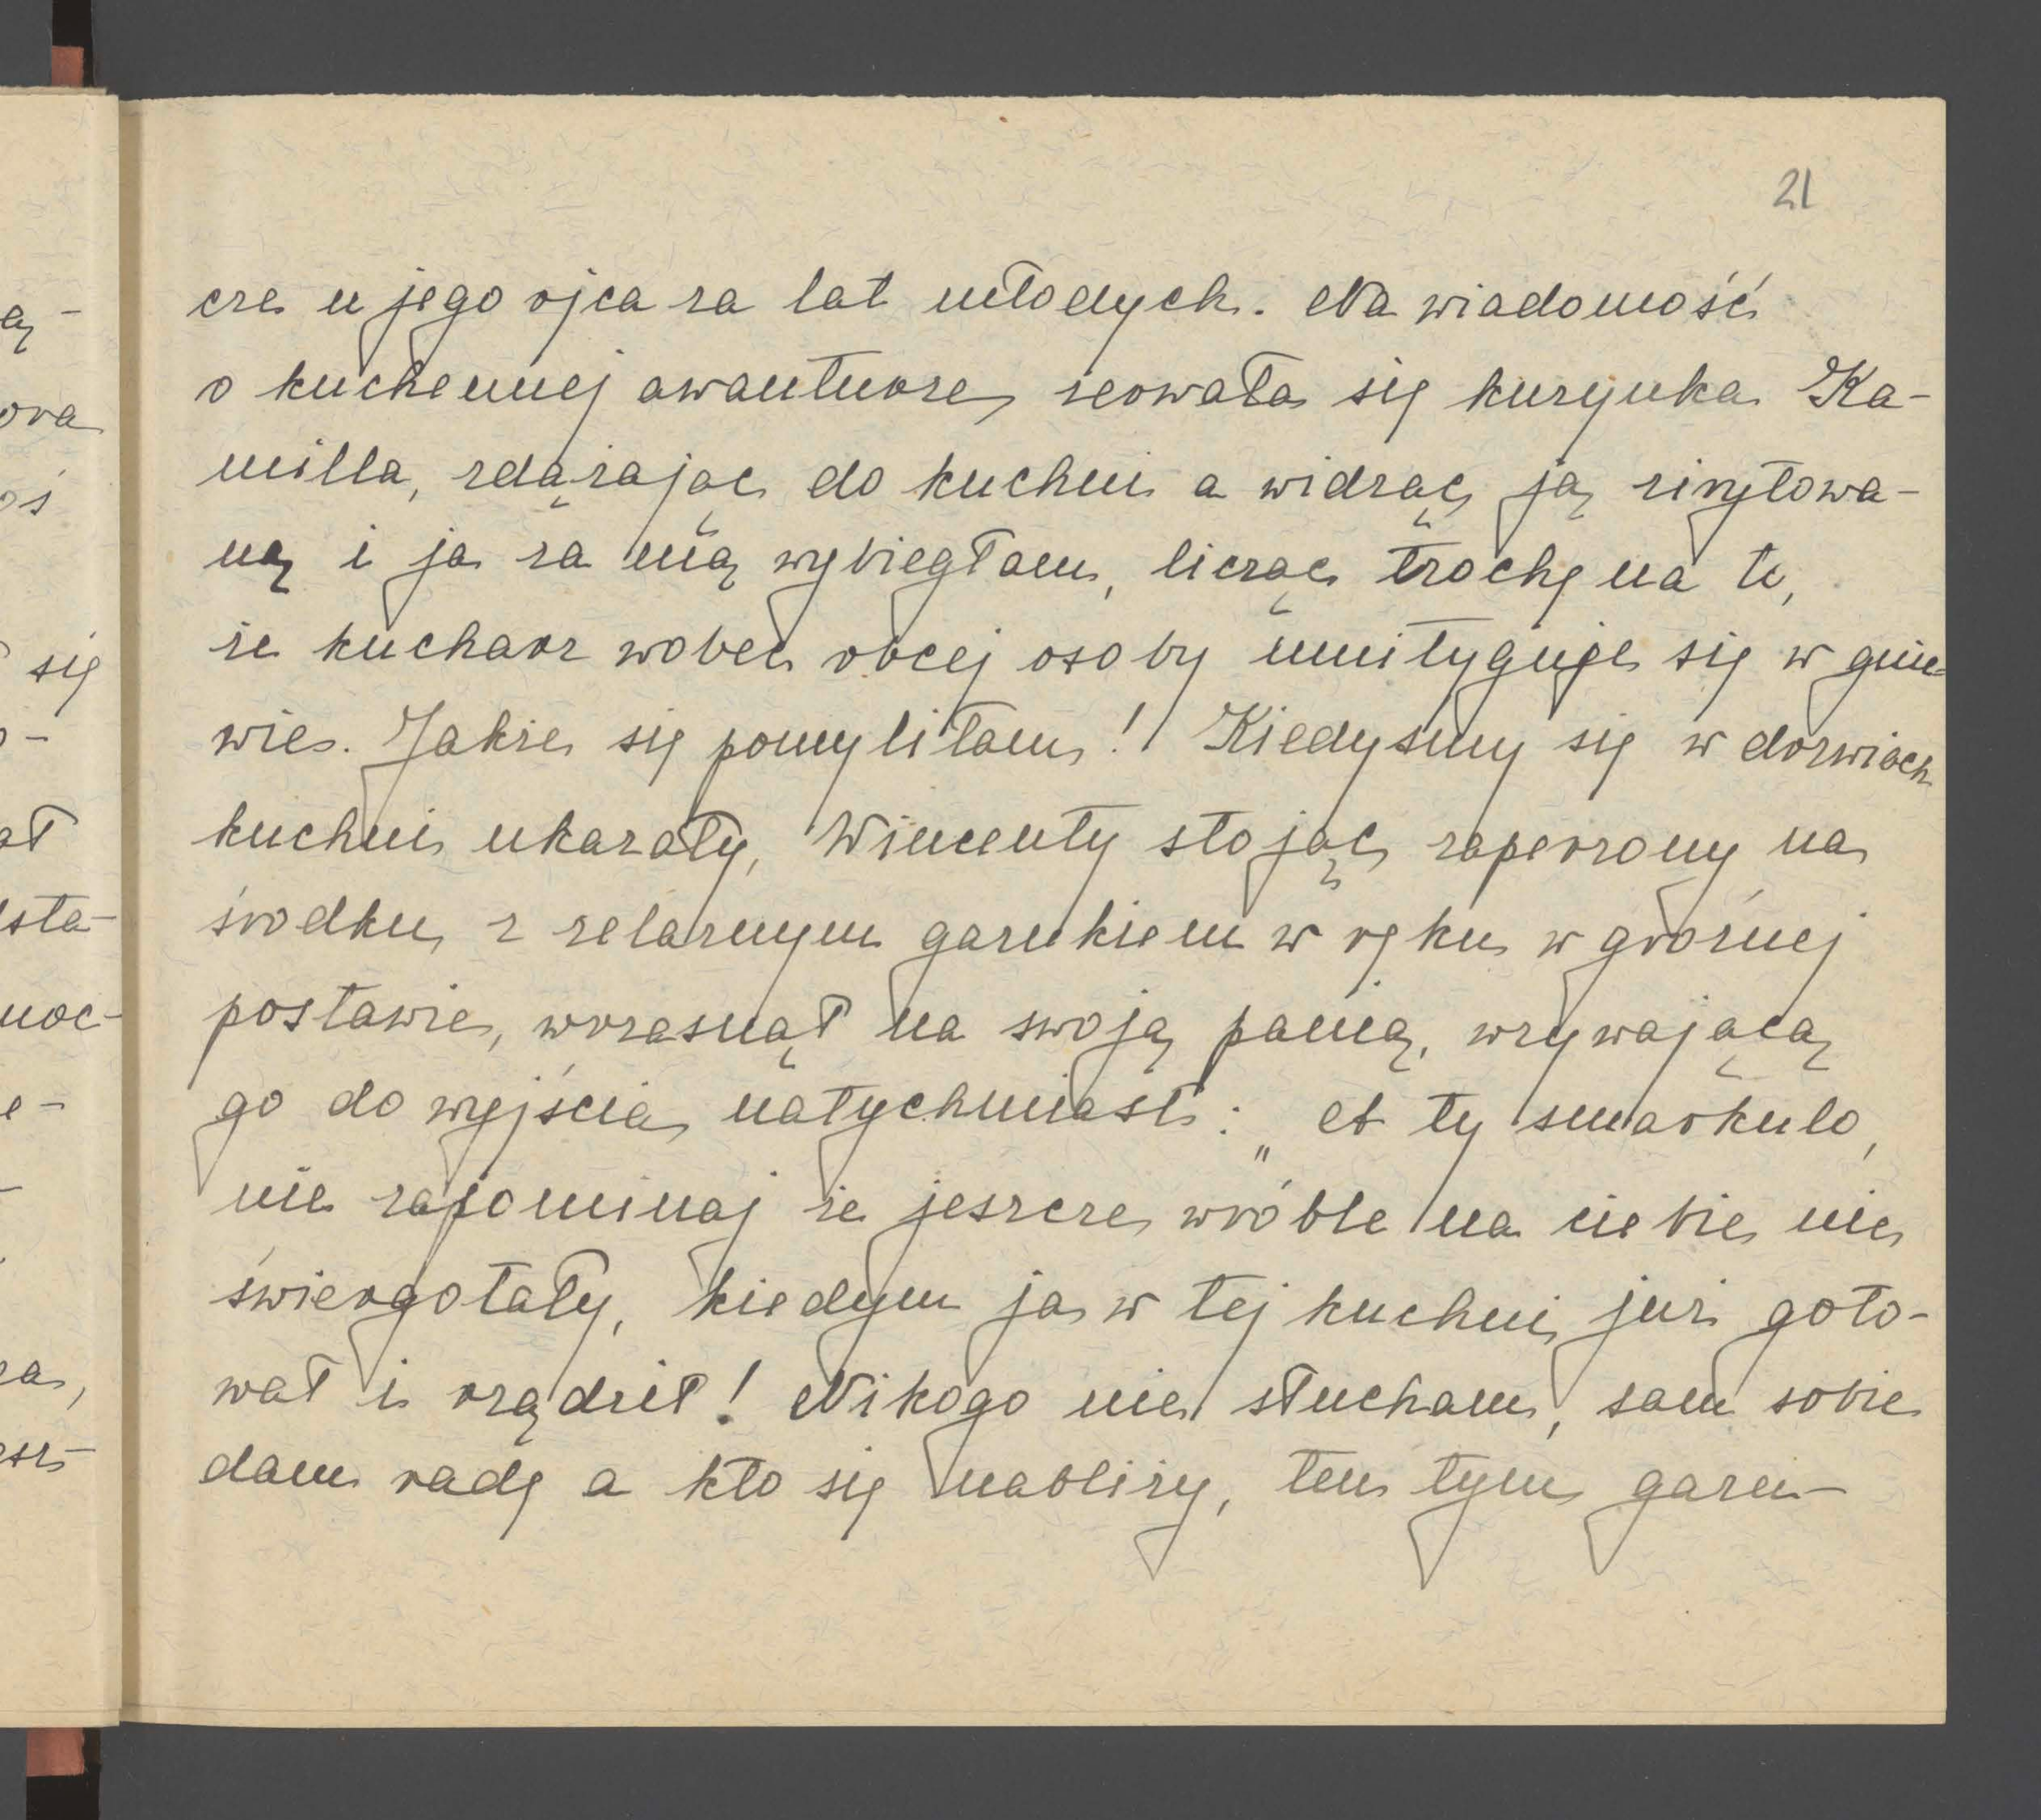 21
cze u jego ojca za lat młodych. Na wiadomość
o kuchennej awanturze, zerwała się kuzynka Ka-
milla, zdążając do kuchni a widząc ją zirytowa-
ną i ja za nią wybiegłam, licząc trochę na to,
że kucharz wobec obcej osoby zmityguje się w gnie-
wie. Jakże się pomyliłam! Kiedyśmy się w dorzwiach
kuchni ukazały, Wincenty stojąc zaperzony na
środku, z żelaznym garnkiem w ręku, w groźnej
postawie, wrzasnął na swoją panią, wzywającą
go do wyjścia natychmiast: „A ty smarkulo,
nie zapominaj że jeszcze wróble na ciebie nie
świergotały, kiedym ja w tej kuchni już goto-
wał i rządził! Nikogo nie słucham, sam sobie
dam radę a kto się nabliży, ten tym garn-
ą-
ora
oś
się
o-
ał
sta-
noc-
e-
za,
esz-